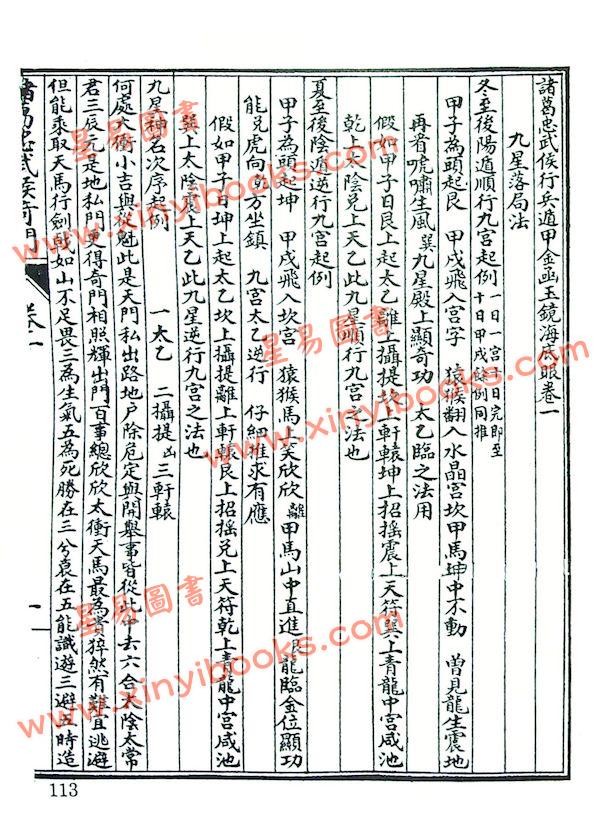 諸葛忠武侯行兵遁甲金函玉鏡海底眼卷一
九星落局法
冬至後陽遁順行九宮起例 一日一宮十日完即至十日甲戌疑例同推
甲子為頭起艮 甲戌飛入宮字 猿猴翻入水晶宮坎 甲馬坤中不動 曾見龍生震地
再看唬嘯生風巽 九星殿上顯奇功 太乙臨之法用
假如甲子日艮上起太乙離上攝提坎上軒轅坤上招搖震上天符巽上青龍中宮咸池
乾上太陰兌上天乙此九星順行九宮之法也
夏至後陰遁逆行九宮起例
甲子為頭起坤 甲戌飛入坎宮 猿猴馬上笑欣欣離 甲馬山中直進艮 龍臨金位顯功
能兌 虎向 方坐鎮 九宮太乙逆行 仔細推求有應
假如甲子日坤上起太乙坎上攝提離上軒轅艮上招搖兌上天符乾上青龍中宮咸池
巽上太陰震上天乙此九星逆行九宮之法也
九星神名次序起例 一太乙 二攝提凶 三軒轅
何處大衝小吉與從魁此是天門私出路地戶除危定與開舉事皆從此中去六合太陰太常
君三辰元是地私門更得奇門相照輝出門百事總欣欣太衝天馬最為貴猝然有難宜逃避
但能乘取天馬行劍戟如山不足畏三為生氣五為死勝在三兮衰在五能識遊三避五時造
諸葛忠武侯奇門
卷一
一
113
星易圖書
www.xinyibooks.com
星易圖書
www.xinyibooks.com
星易圖書
www.xinyibooks.com